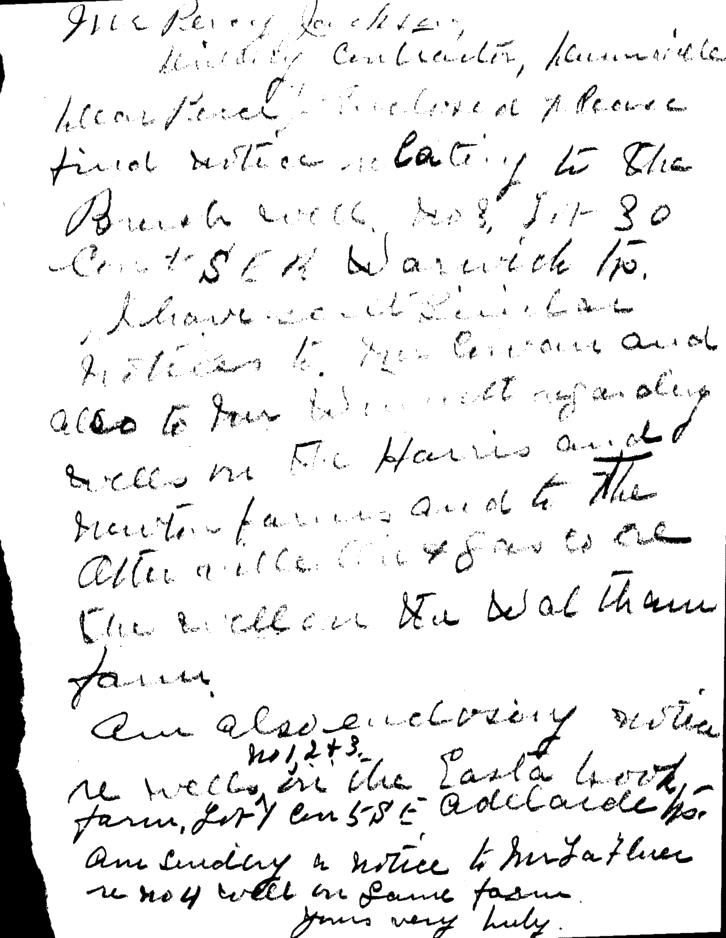 Mr Percy Jackson,
Drilling Contractor,
Dear Percy Enclosed please
find notice relating to the
Brush well, No 3, Lot 30
Con 1 S E R Warwick Tp.
I have sent Similar
notices to Mr Cowan and
also to Mr regarding
wells on the Harris and
Newton farms and to the
Oil & Gas Co re
the well on the Waltham
farm.
Am also enclosing notice
No 1, 2 & 3.
re wells, on the Easta brook
farm, Lot 7 Con 5 S E Adelaide Tp.
Am sending a notice to Mr La Fleur
re No 4 well on same farm.
Yours very truly.